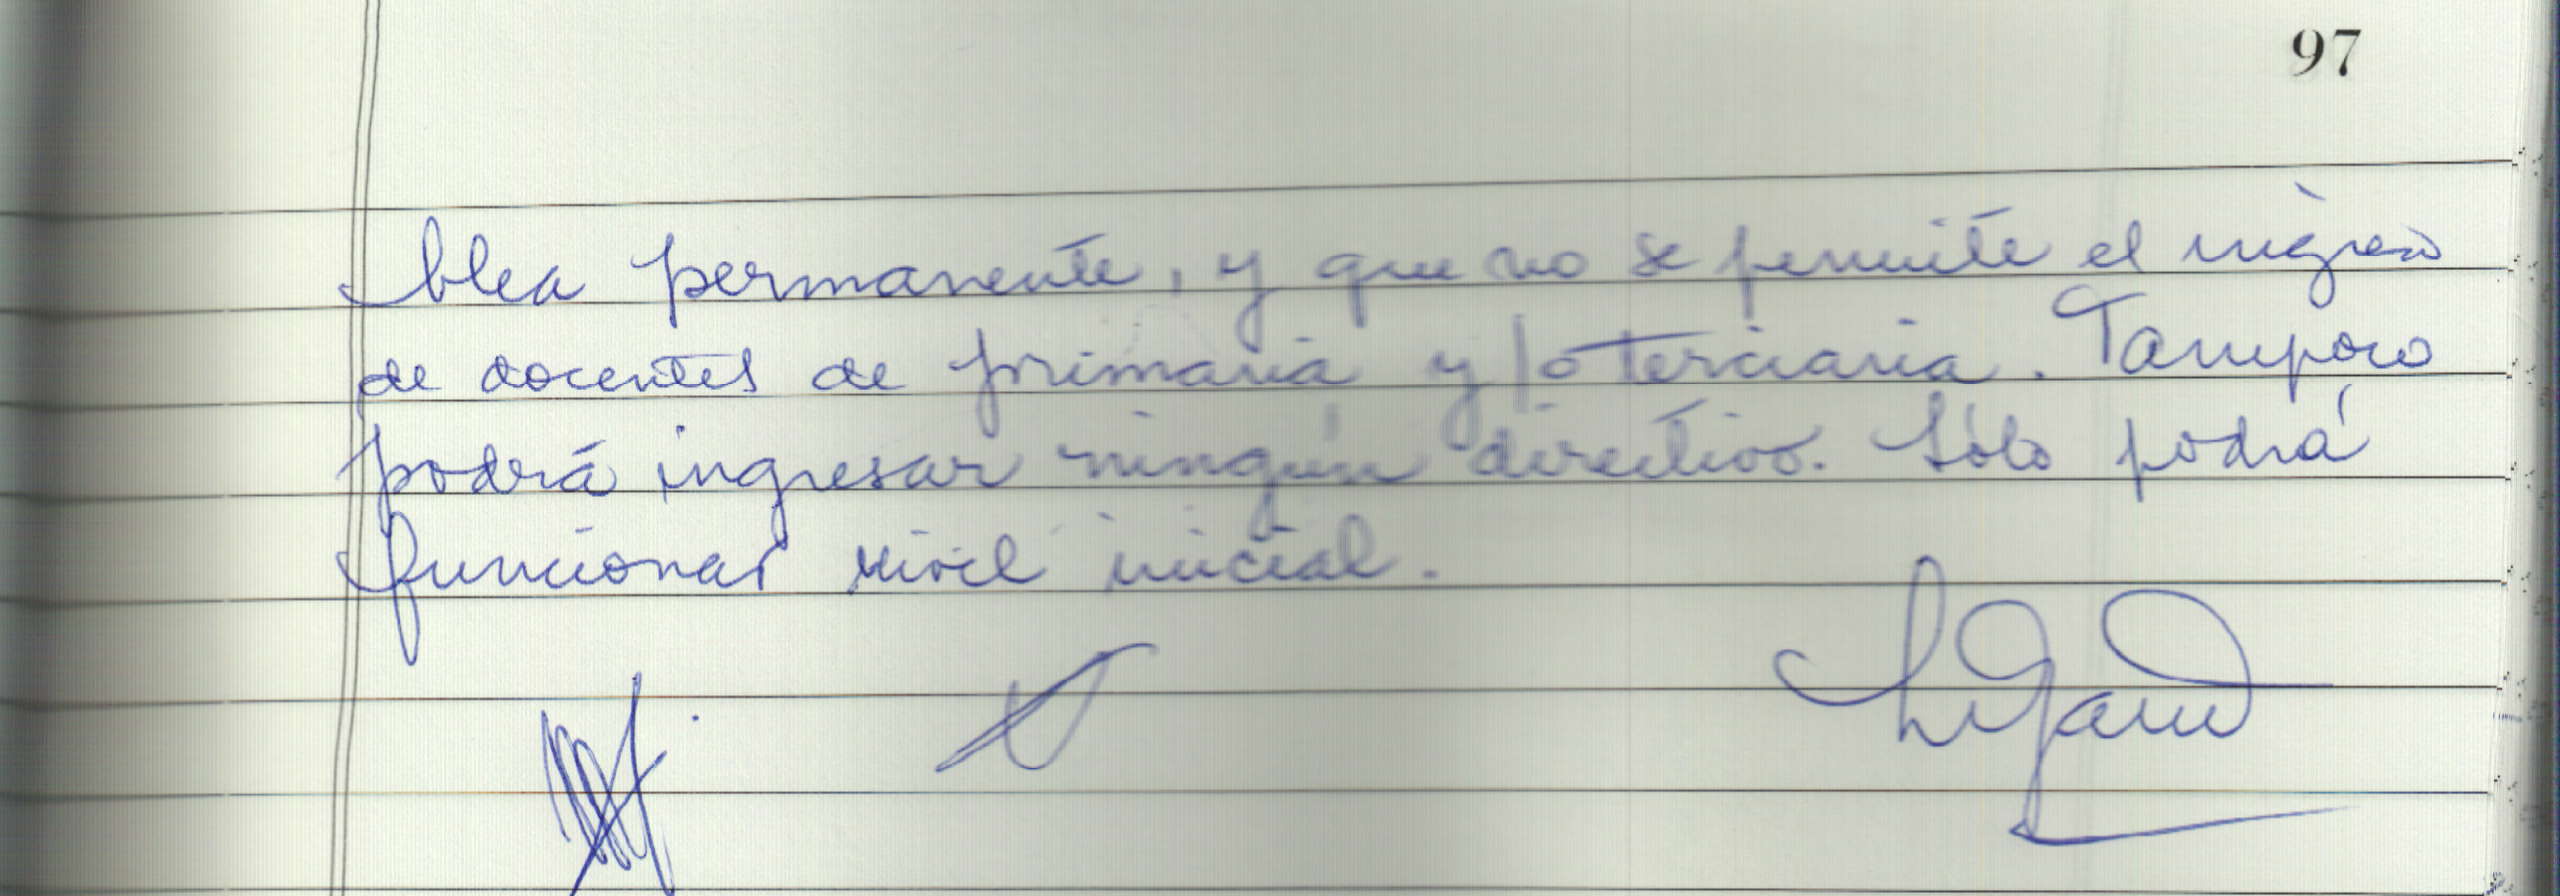 97
blea permanente, y que no se permite el ingreso
de docentes de primaria y/o terciaria. Tampoco
podrá ingresar ningún directivo. Sólo podrá
funcionar nivel inicial.